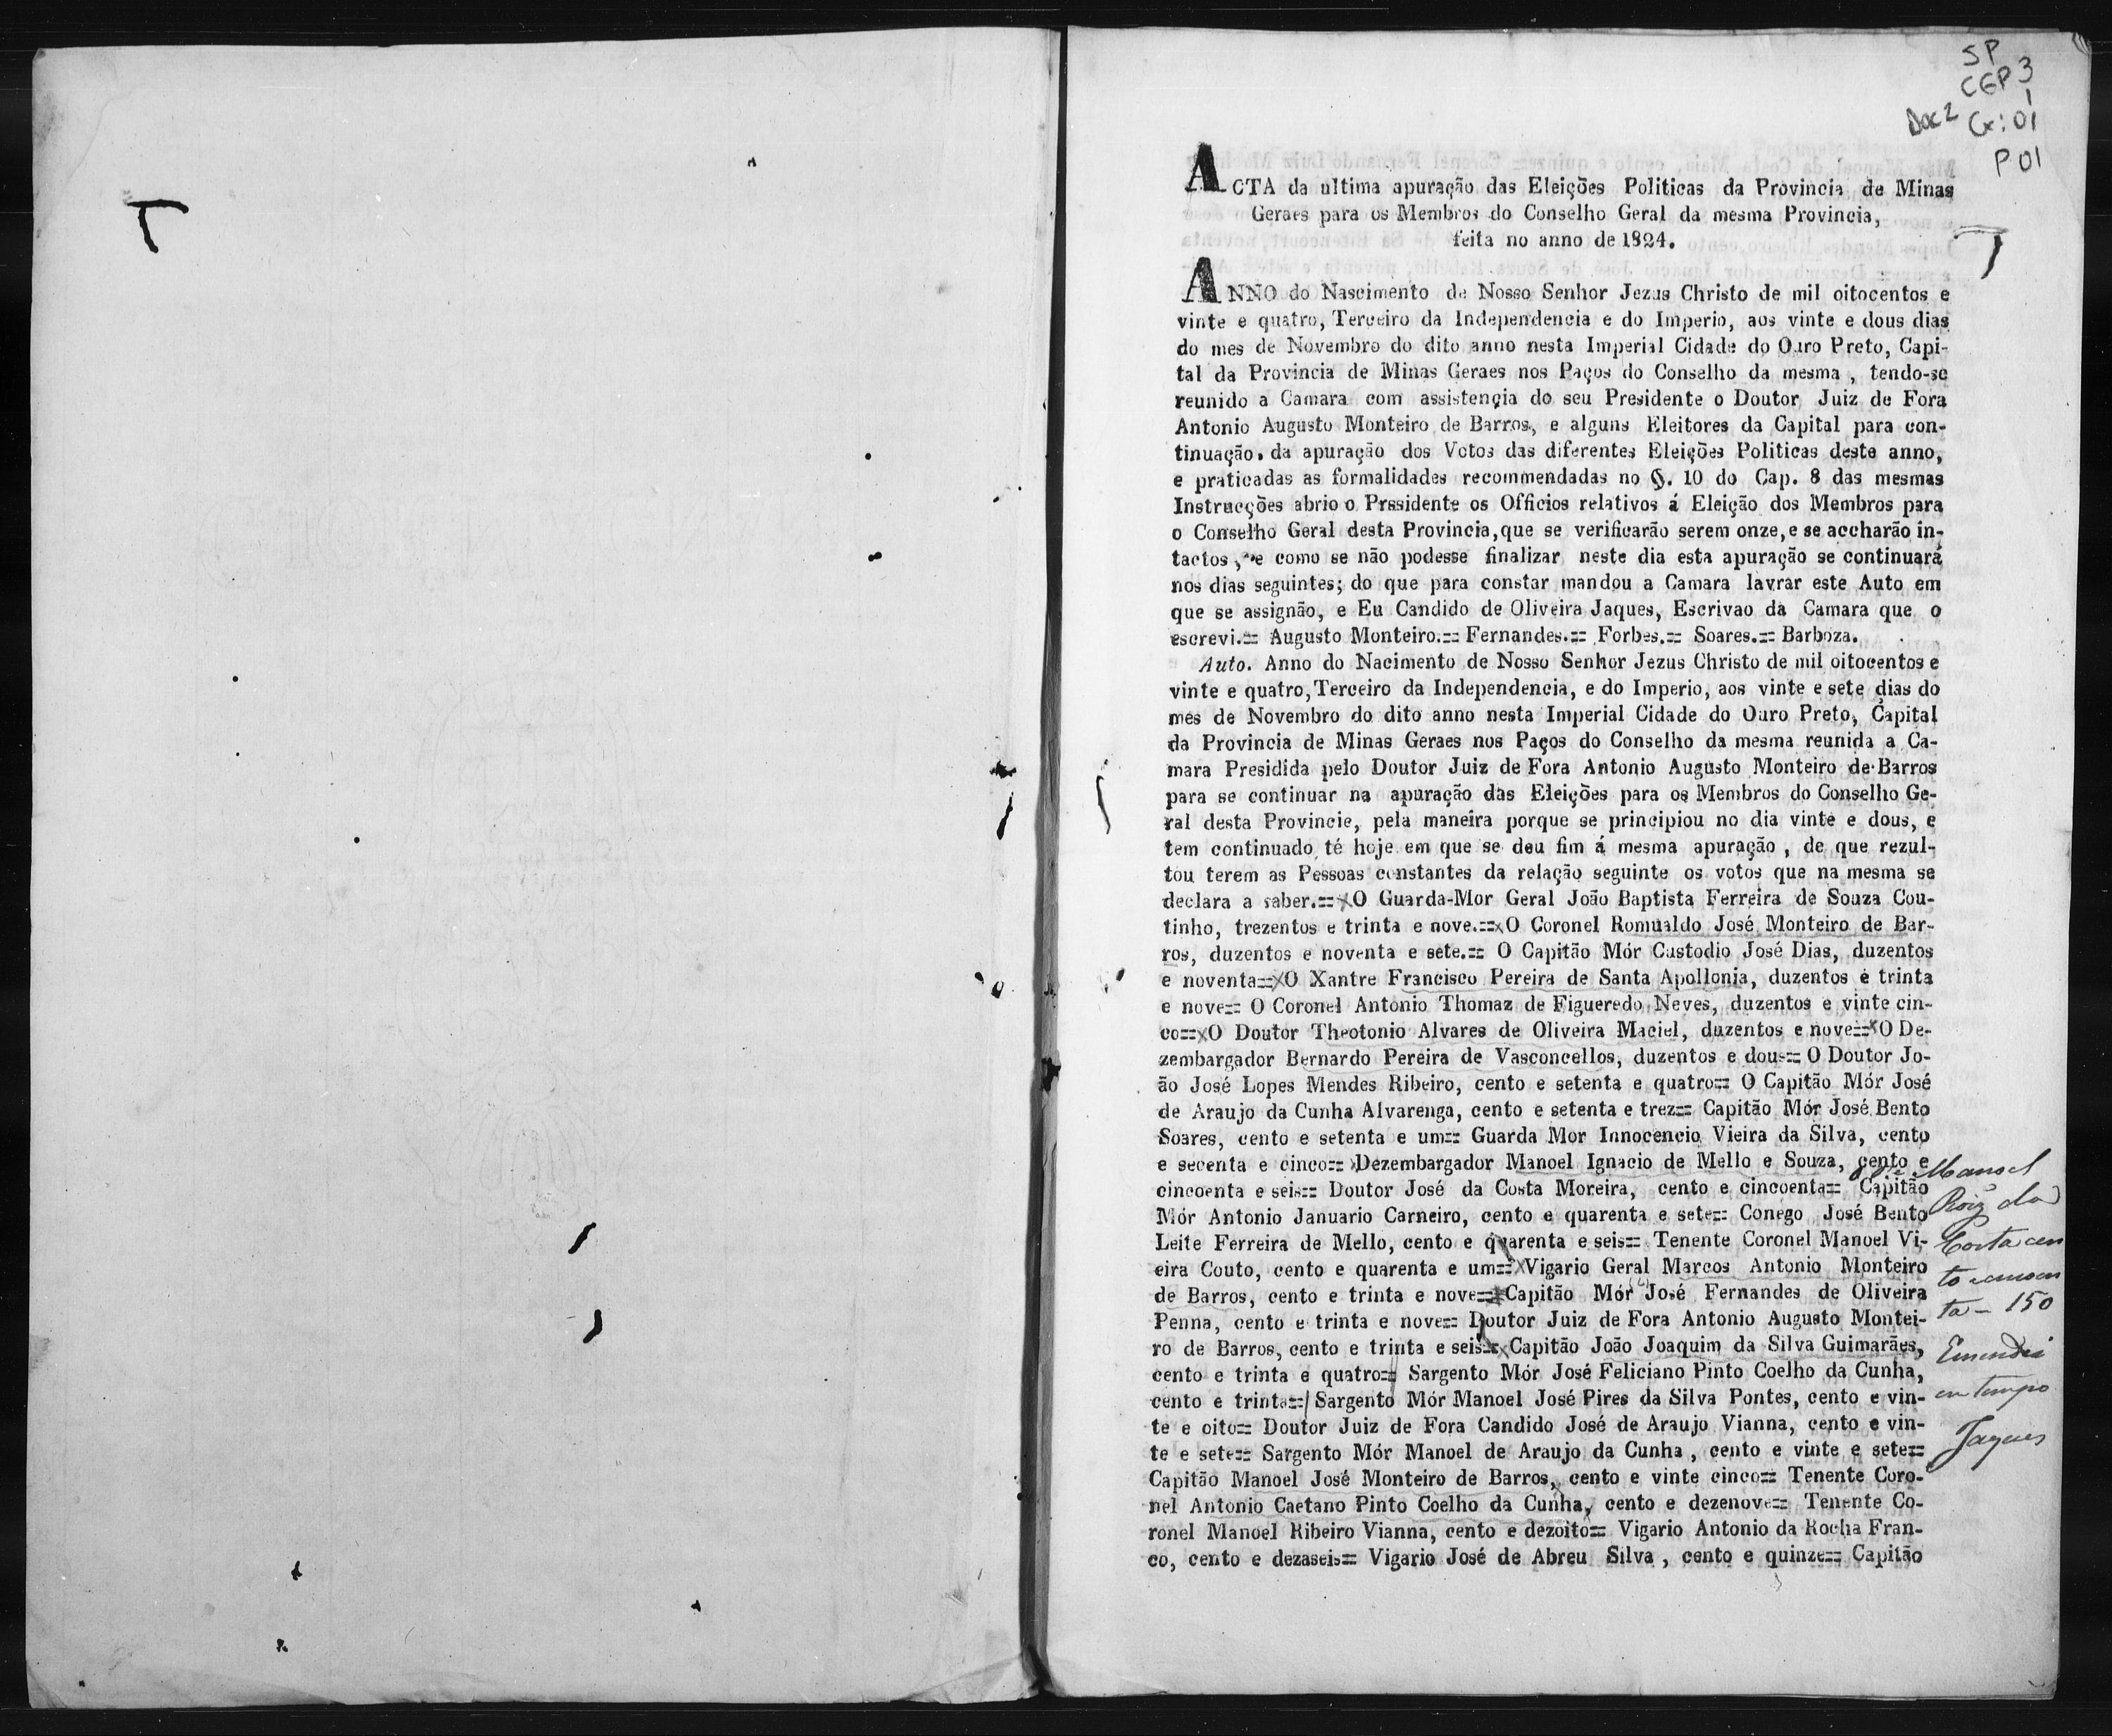 SP
CGP 3
1
Doc 2 Cx: 01
P 01
ACTA da ultima apuração das Eleições Politicas da Provincia de Minas
Geraes para os Membros do Conselho Geral da mesma Provincia,
feita no anno de 1824.
ANNO do Nascimento de Nosso Senhor Jezus Christo de mil oitocentos e
vinte e quatro, Terceiro da Independencia e do Imperio, aos vinte e dous dias
do mes de Novembro do dito anno nesta Imperial Cidade do Ouro Preto, Capi-
tal da Provincia de Minas Geraes nos Paços do Conselho da mesma, tendo-se
reunido a Camara com assistençia do seu Presidente o Doutor Juiz de Fora
Antonio Augusto Monteiro de Barros, e alguns Eleitores da Capital para con-
tinuação da apuração dos Votos das diferentes Eleições Politicas deste anno,
e praticadas as formalidades recommendadas no §. 10 do Cap. 8 das mesmas
Instrucções abrio o Prssidente os Officios relativos á Eleição dos Membros para
o Conselho Geral desta Provincia, que se verificarão serem onze, e se accharão in-
tactos, e como se não podesse finalizar neste dia esta apuração se continuará
nos dias seguintes; do que para constar mandou a Camara lavrar este Auto em
que se assignão, e Eu Candido de Oliveira Jaques, Escrivao da Camara que o
escrevi.== Augusto Monteiro.== Fernandes.== Forbes.== Soares.== Barboza.
Auto. Anno do Nacimento de Nosso Senhor Jezus Christo de mil oitocentos e
vinte e quatro, Terceiro da Independencia, e do Imperio, aos vinte e sete dias do
mes de Novembro do dito anno nesta Imperial Cidade do Ouro Preto, Capital
da Provincia de Minas Geraes nos Paços do Conselho da mesma reunida a Ca-
mara Presidida pelo Doutor Juiz de Fora Antonio Augusto Monteiro de Barros
para se continuar na apuração das Eleições para os Membros do Conselho Ge-
ral desta Provincie, pela maneira porque se principiou no dia vinte e dous, e
tem continuado té hoje em que se deu fim á mesma apuração, de que rezul-
tou terem as Pessoas constantes da relação seguinte os votos que na mesma se
declara a saber.== x O Guarda-Mor Geral João Baptista Ferreira de Souza Cou-
tinho, trezentos e trinta e nove.== x O Coronel Romualdo José Monteiro de Bar-
ros, duzentos e noventa e sete.== O Capitão Mór Custodio José Dias, duzentos
e noventa== x O Xantre Francisco Pereira de Santa Apollonia, duzentos e trinta
e nove== O Coronel Antonio Thomaz de Figueredo Neves, duzentos e vinte cin-
co== x O Doutor Theotonio Alvares de Oliveira Maciel, duzentos e nove== x O De-
zembargador Bernardo Pereira de Vasconcellos, duzentos e dous== O Doutor Jo-
ão José Lopes Mendes Ribeiro, cento e setenta e quatro== O Capitão Mór José
de Araujo da Cunha Alvarenga, cento e setenta e trez== Capitão Mór José Bento
Soares, cento e setenta e um== Guarda Mor Innocencio Vieira da Silva, cento
e secenta e cinco== Dezembargador Manoel Ignacio de Mello e Souza, cento e
cincoenta e seis== Doutor José da Costa Moreira, cento e cincoenta== Capitão
Mór Antonio Januario Carneiro, cento e quarenta e sete== Conego José Bento
Leite Ferreira de Mello, cento e quarenta e seis== Tenente Coronel Manoel Vi-
eira Couto, cento e quarenta e um== x Vigario Geral Marcos Antonio Monteiro
de Barros, cento e trinta e nove== Capitão Mór José Fernandes de Oliveira
Penna, cento e trinta e nove== Doutor Juiz de Fora Antonio Augusto Montei-
ro de Barros, cento e trinta e seis== x Capitão João Joaquim da Silva Guimarães,
cento e trinta e quatro== Sargento Mór José Feliciano Pinto Coelho da Cunha,
cento e trinta== Sargento Mór Manoel José Pires da Silva Pontes, cento e vin-
te e oito== Doutor Juiz de Fora Candido José de Araujo Vianna, cento e vin-
te e sete== Sargento Mór Manoel de Araujo da Cunha, cento e vinte e sete==
Capitão Manoel José Monteiro de Barros, cento e vinte cinco== Tenente Coro-
nel Antonio Caetano Pinto Coelho da Cunha, cento e dezenove== Tenente Co-
ronel Manoel Ribeiro Vianna, cento e dezoito== Vigario Antonio da Rocha Fran-
co, cento e dezaseis== Vigario José de Abreu Silva, cento e quinze== Capitão
Manoel
Roiz da
Costa cen
to e cincoen
ta - 150
Emendei
em tempo
Jaques